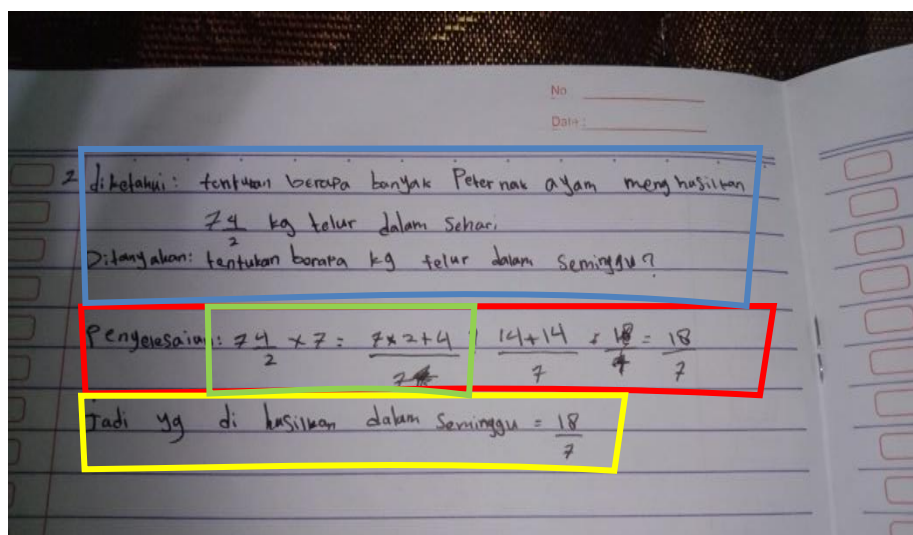 No
Date :
2 diketahui: tentukan berapa banyak Peternak ayam menghasilkan
7 4/2 kg telur dalam sehari
Ditanyakan: tentukan berapa kg telur dalam seminggu?
Pengelesaian: 7 4/2 × 7 = 7×2+4/7 14+14/7 = 18/7 = 18/7
Jadi yg di hasilkan dalam seminggu = 18/7